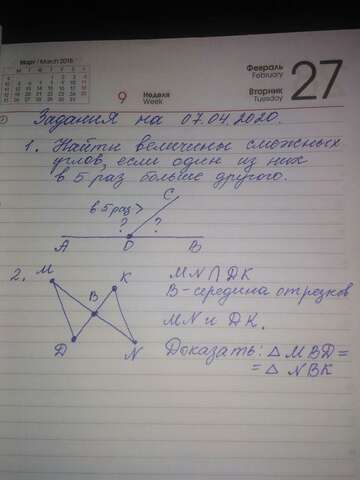 Март / March 2018
9
Неделя
Week
Февраль
February
Вторник
Tuesday
27
Задания на 07.04.2020.
1. Найти величины смежных
углов, если один из них
в 5 раз больше другого.
C
в 5 раз >
? ?
A D B
2. M K
B
D N
MN ∩ DK
B - середина отрезков
MN и DK.
Доказать: △ MBD =
= △ NBK